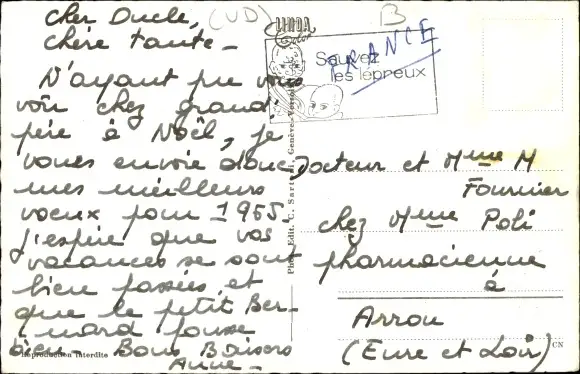 Cher Oncle,
chère tante -
N'ayant pu vous
voir chez grand-
père à Noël, je
vous envoie donc
mes meilleurs
voeux pour 1965.
J'espère que vos
vacances se sont
bien passées, et
que le petit Ber-
nard pousse
bien - Bons Baisers
Anne -
Reproduction interdite
(VD)
LINDA
Color
B
FRANCE
Sauvez
les lépreux
Photo Edit. C. Sartori, Genève
Docteur et Mme M
Fournier
chez Mme Poli
pharmacienne
à
Arrou
(Eure et Loir)
CN